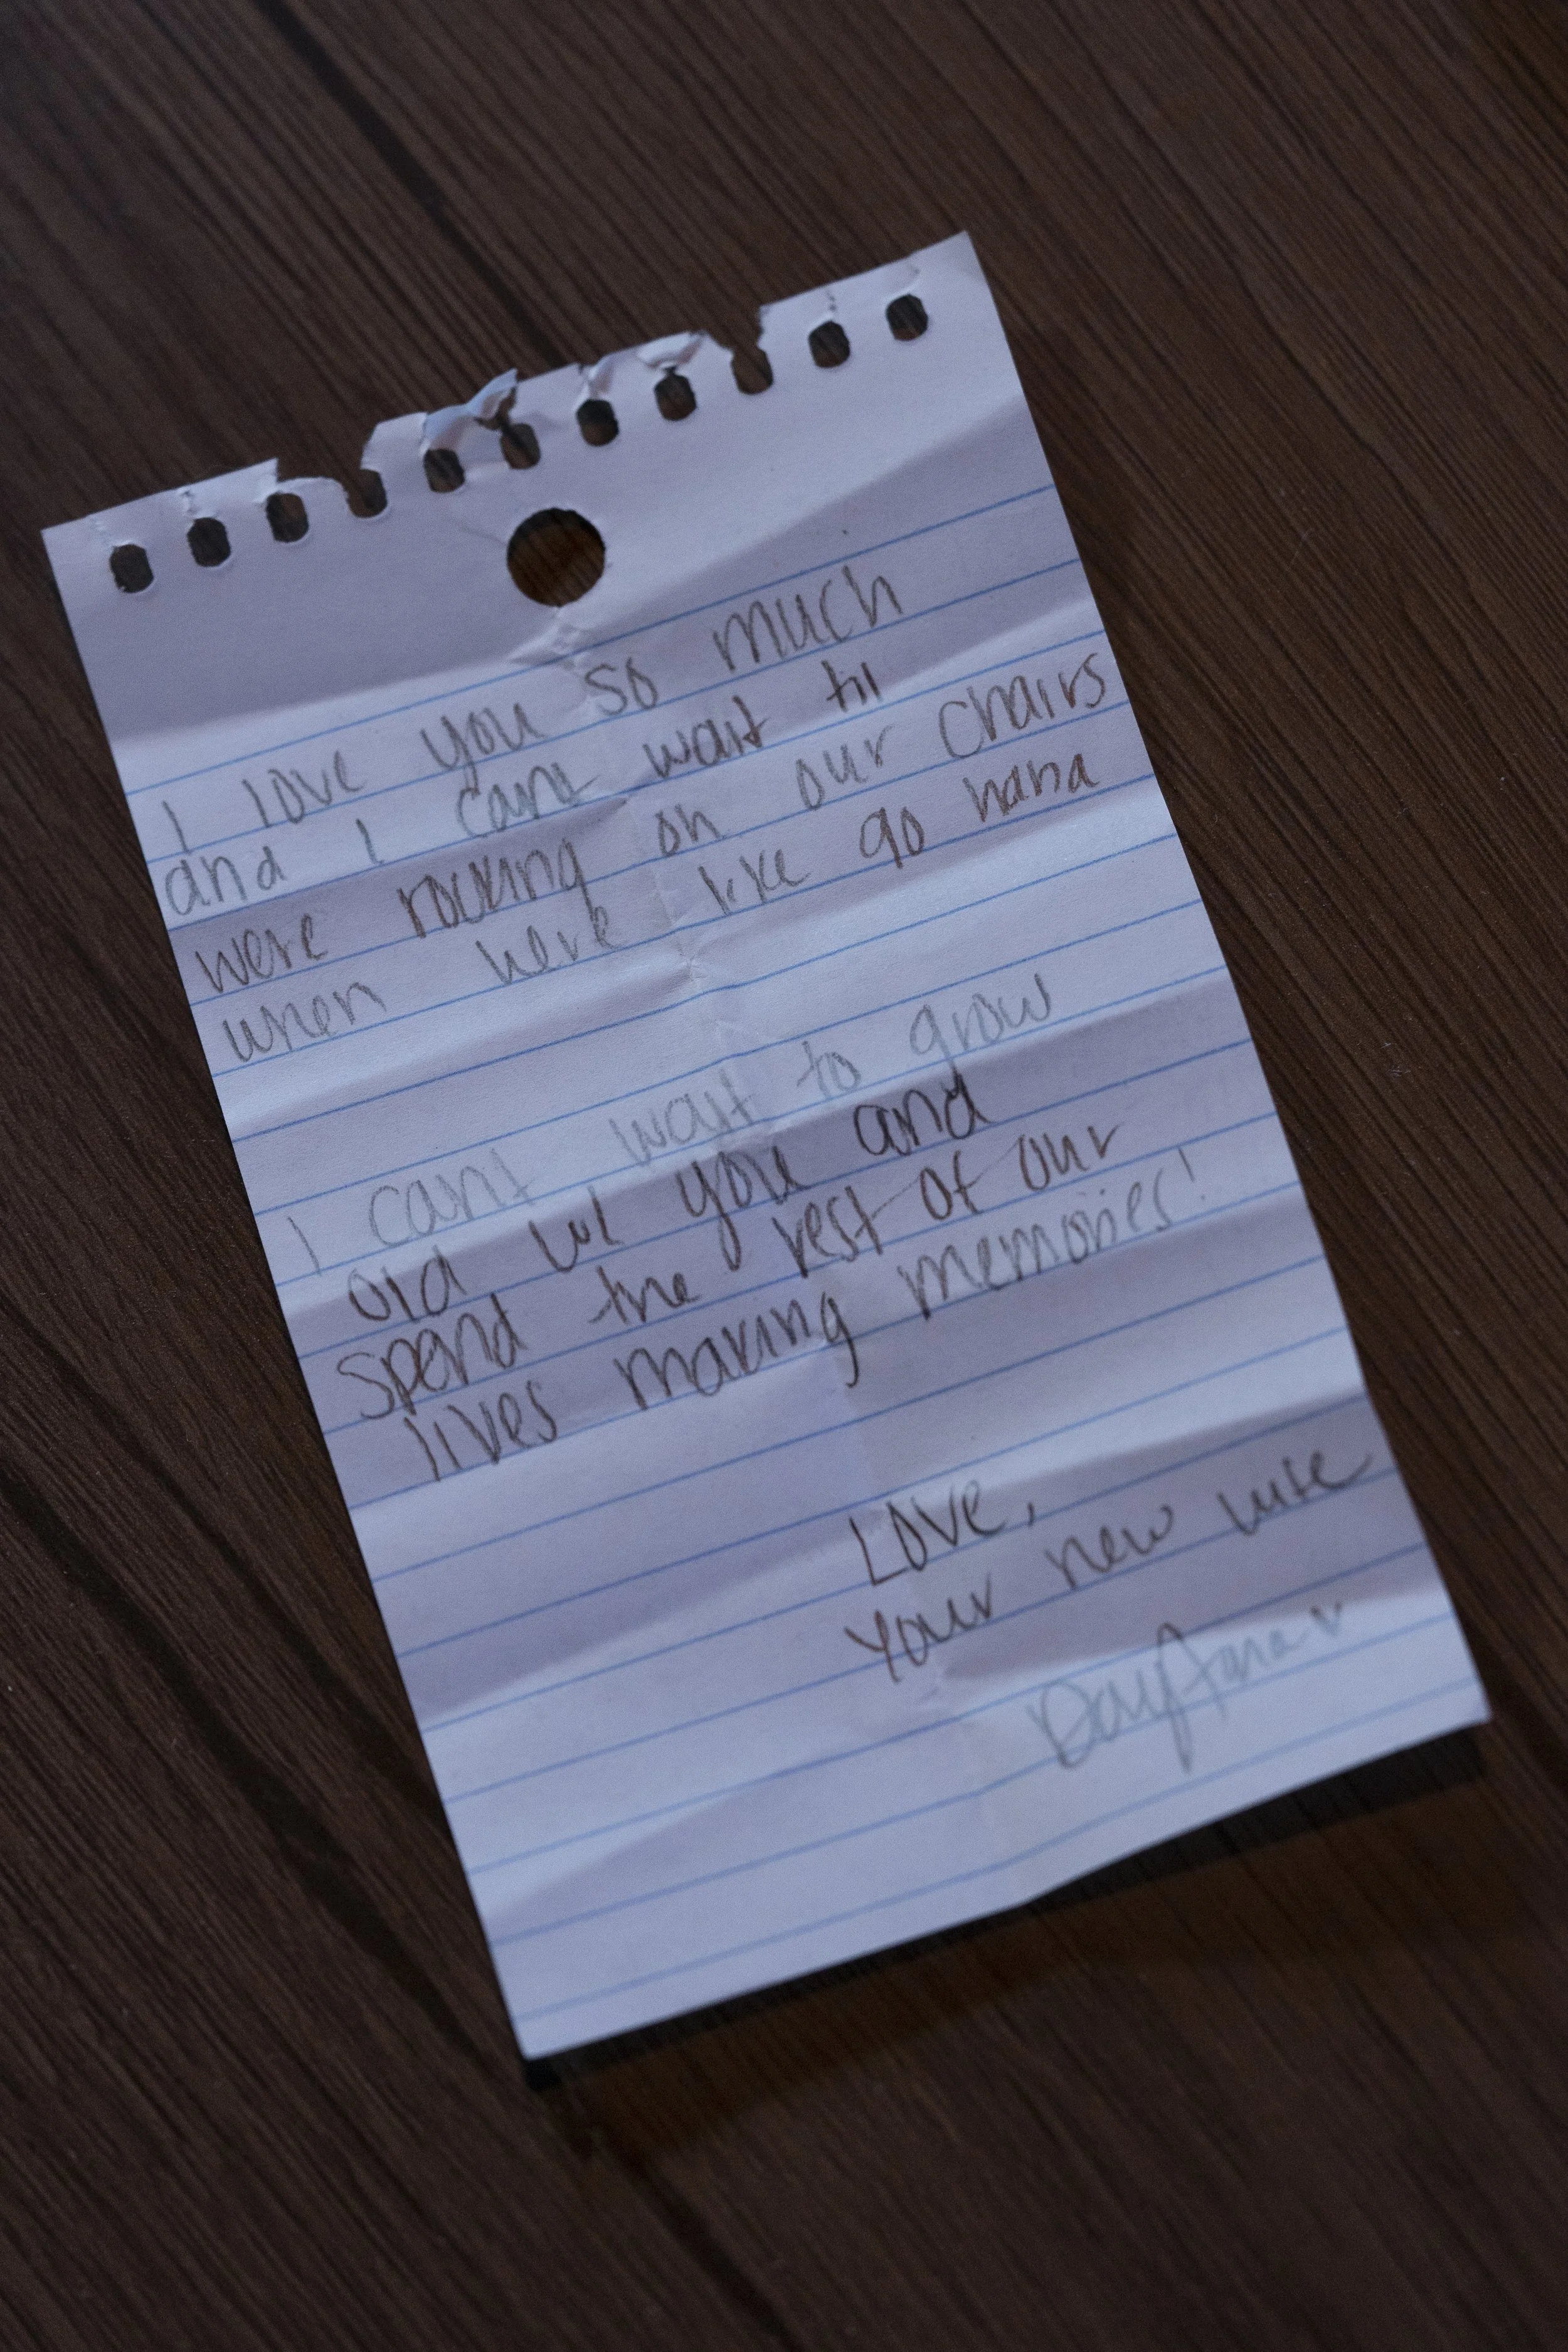 I love you so much
and I cant wait til
were rocking on our chairs
when were like 90 haha
I cant wait to grow
old w/ you and
spend the rest of our
lives making memories!
Love,
Your new wife